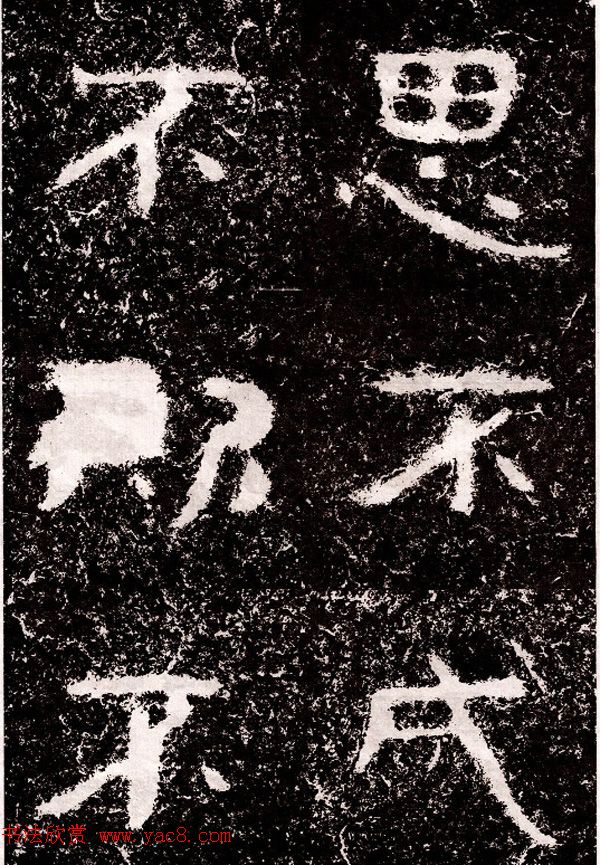 思不成
不不
书法欣赏 www.yac8.com